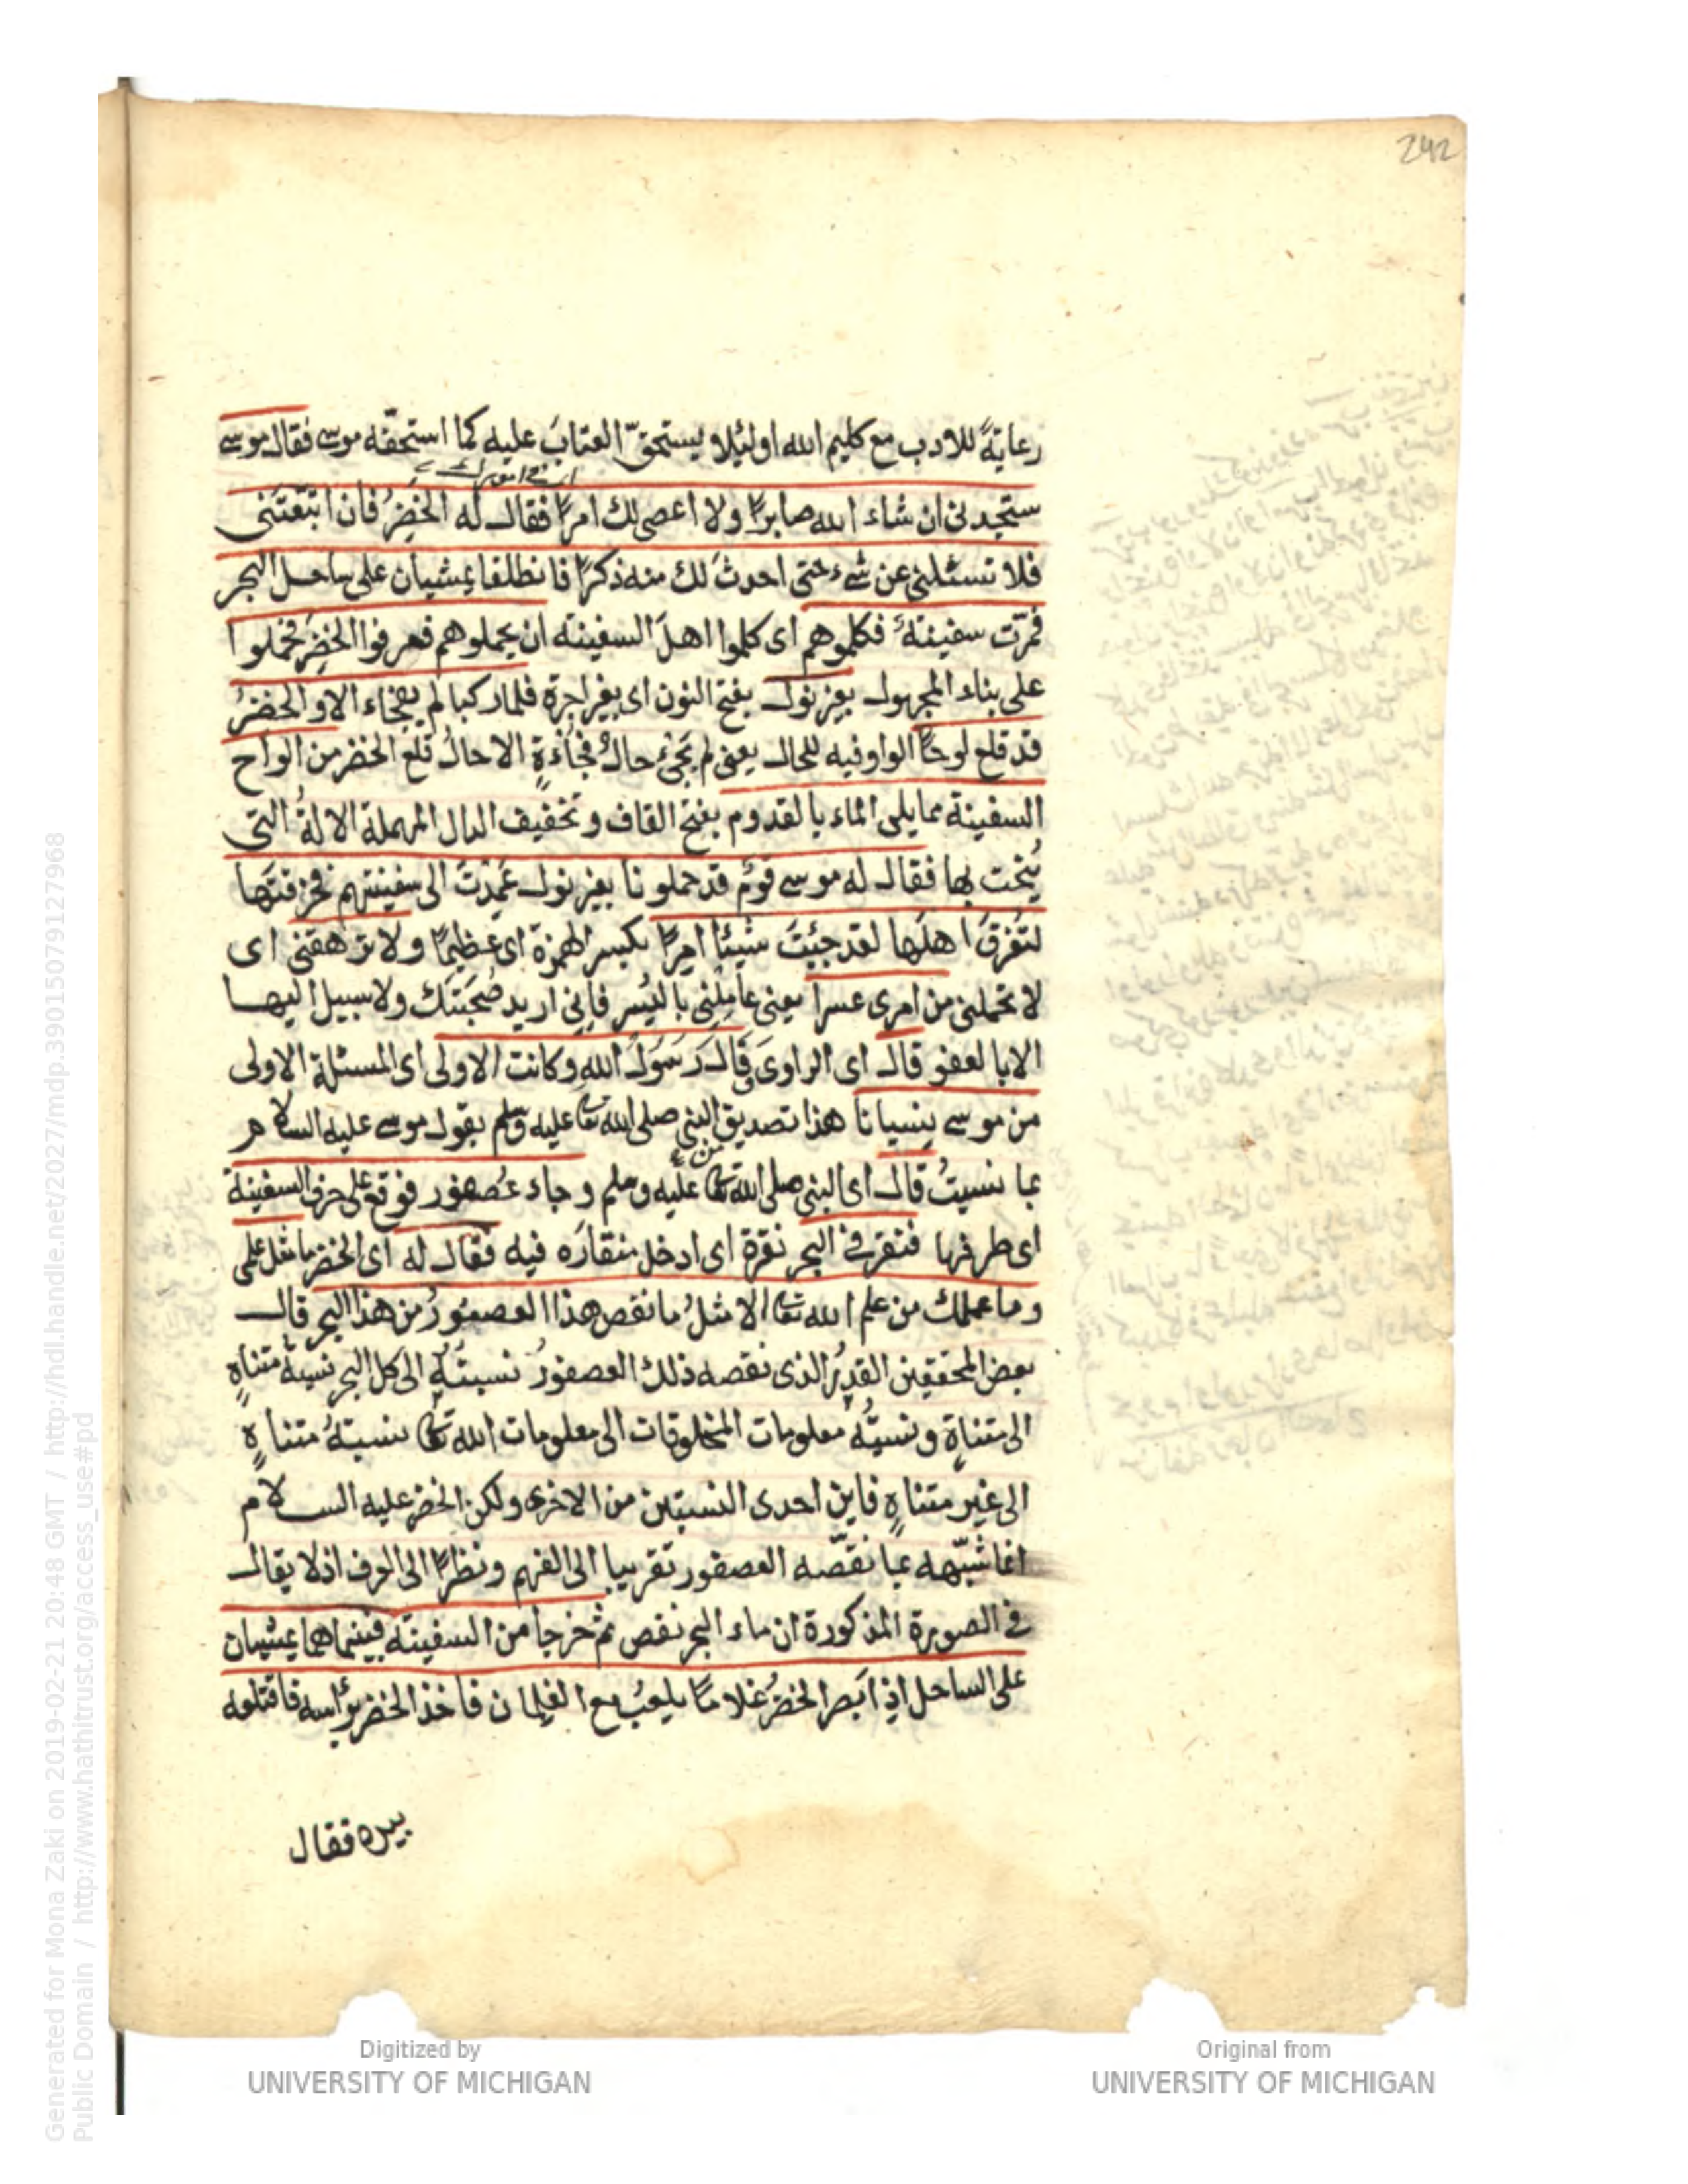 242
رعايةً للادب مع كليم الله اولئلا يستحقّ العتابَ عليه كما استحقّه موسى فقال موسى
ستجدنى ان شاء الله صابرًا ولا اعصى لك امرًا فقال له الخَضِرُ فان اتبعتَنى
فلا تسئلنى عن شىء حتى احدثَ لك منه ذكرًا فانطلقا يمشيان على ساحل البحر
فمرّت سفينةٌ فكلموهم اى كلموا اهلَ السفينة ان يحملوهم فعرفوا الخضِرَ فحملوا
على بناء المجهول بغير نول بفتح النون اى بغير اجرة فلما ركبا لم يفجاء الا والخضرُ
قد قلع لوحًا الواو فيه للحال يعنى لم يجئ حالٌ فجاءةٍ الا حالُ قلع الخضر من الواح
السفينة مما يلى الماء بالقدوم بفتح القاف وتخفيف الدال المهملة الالةُ التى
يُنحت بها فقال له موسى قومٌ قد حملونا بغير نول عَمِدْتَ الى سفينتهم فخرقتَها
لتُغرقَ اهلَها لقد جئتَ شيئا اِمرًا بكسر الهمزة اى عظيمًا ولا ترهقنى اى
لا تحملنى من امرى عسرا يعنى عامِلْنى باليُسر فاِنى اريد صُحبَتَك ولا سبيل اليها
الا بالعفو قال اى الراوى قال رَسُولُ الله وكانت الاولى اى المسئلة الاولى
من موسى نِسيانا هذا تصديق النبى صلى الله تعا عليه وسلم بقول موسى عليه السلام
بما نسيتُ قال اى النبى صلى الله تعا عليه وسلم وجاء عُصفور فوقع على حرف السفينة
اى طرفها فنقر فى البحر نقرة اى ادخل منقارَه فيه فقال له اى الخضر ما مثل علمى
وما علمك من علم الله تعا الا مثلُ ما نقص هذا العصفورُ من هذا البحر قال
بعض المحققين القدرُ الذى نقصه ذلك العصفورُ نسبتُهُ الى كل البحر نسبةُ متناهٍ
الى متناهٍ ونسبتُه معلومات المخلوقات الى معلومات الله تعا نسبتهُ متناهٍ
الى غير متناهٍ فاين احدى النسبتين من الاخرى ولكن الخضر عليه السلام
انما شبّهه بما نقّصه العصفور تقريبا الى الفهم ونظرًا الى العرف اذ لا يقال
فى الصورة المذكورة ان ماء البحر نقص ثم خرجا من السفينة فبينما هما يمشيان
على الساحل اذ ابصر الخضرُ غلامًا يلعبُ مع الغلمان فاخذ الخضر برأسه فاقتلعه
بيده فقال
Generated for Mona Zaki on 2019-02-21 20:48 GMT / http://hdl.handle.net/2027/mdp.39015079127968
Public Domain / http://www.hathitrust.org/access_use#pd
Digitized by
UNIVERSITY OF MICHIGAN
Original from
UNIVERSITY OF MICHIGAN